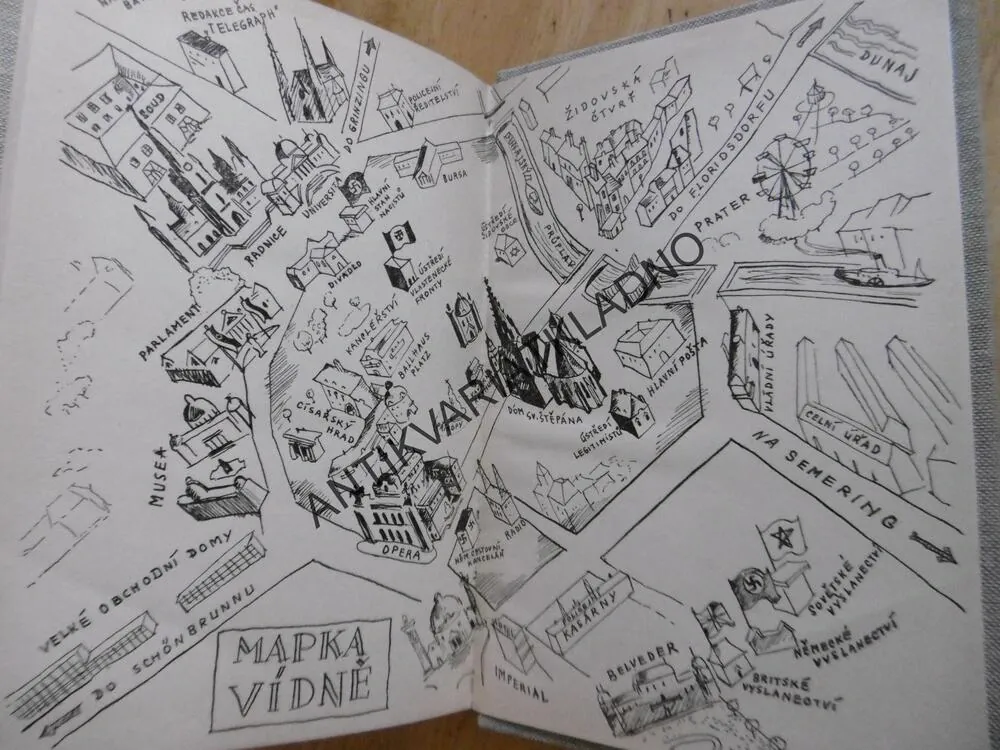 REDAKCE ČAS.
"TELEGRAPH"
SOUD
DO GRINZINGU
POLICEJNÍ
ŘEDITELSTVÍ
BURSA
UNIVERSITA
HLAVNÍ
STAN
NACISTŮ
RADNICE
DIVADLO
ÚSTŘEDÍ
VLASTENECKÉ
FRONTY
PARLAMENT
KANCLÉŘSTVÍ
BALLHAUS
PLATZ
CÍSAŘSKÝ
HRAD
MUSEA
OPERA
VELKÉ OBCHODNÍ DOMY
DO SCHÖNBRUNNU
MAPKA
VÍDNĚ
DUNAJ
ŽIDOVSKÁ
ČTVRŤ
DUNAJSKÝ
PRŮPLAV
DO FLORIDSDORFU
PRATER
ÚSTŘEDÍ
ŽIDOVSKÉ
OBCE
DÓM SV. ŠTĚPÁNA
HLAVNÍ POŠTA
ÚSTŘEDÍ
LEGITIMISTŮ
VLÁDNÍ ÚŘADY
CELNÍ ÚŘAD
NA SEMERING
RADIO
NĚM. CESTOVNÍ
KANCELÁŘ
KASÁRNY
HOTEL
IMPERIAL
BELVEDER
SOVĚTSKÉ
VYSLANECTVÍ
NĚMECKÉ
VYSLANECTVÍ
BRITSKÉ
VYSLANECTVÍ
ANTIKVARIAT KLADNO